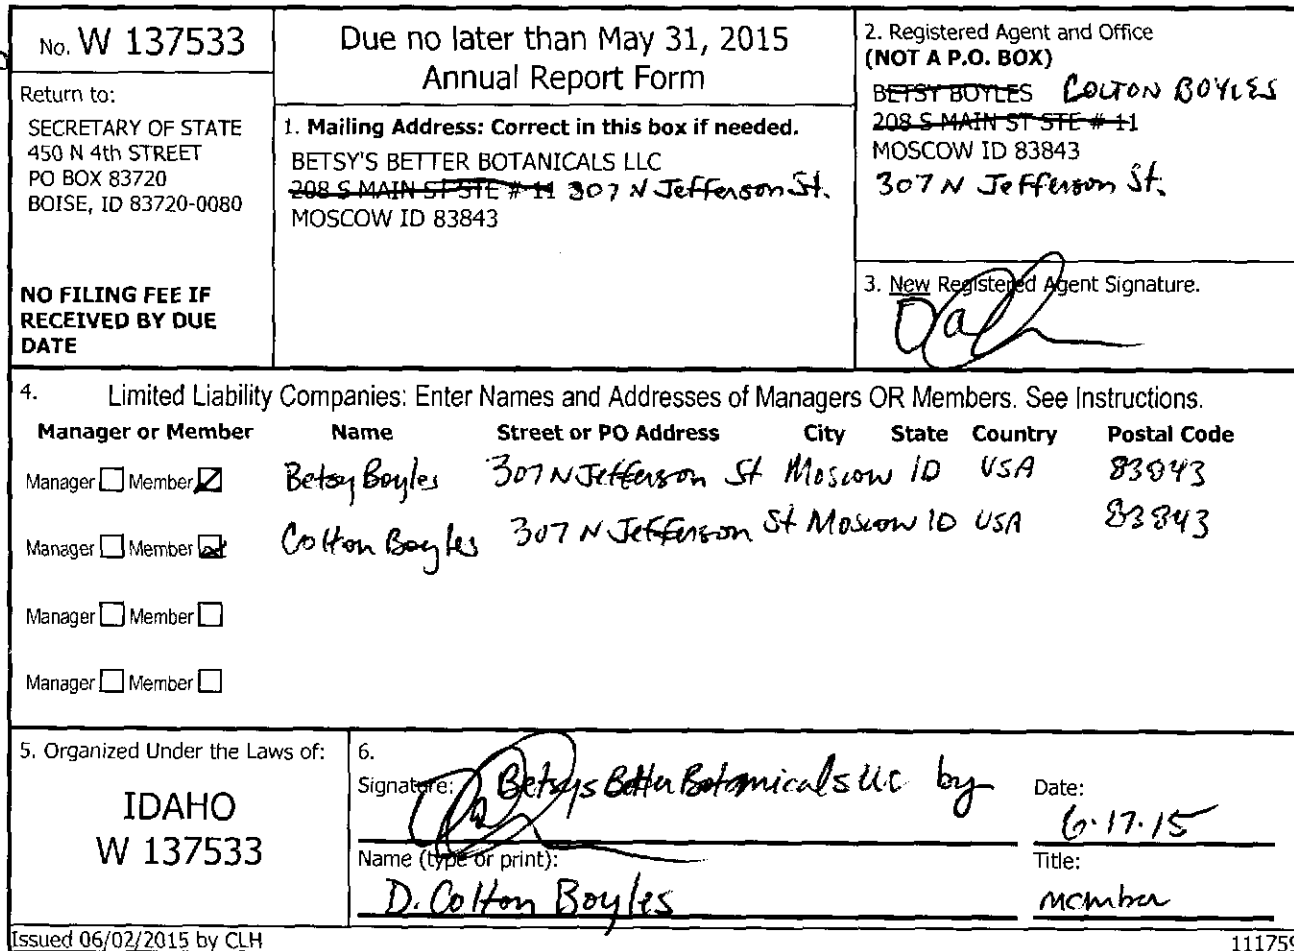 No. W 137533
Return to:
SECRETARY OF STATE
450 N 4th STREET
PO BOX 83720
BOISE, ID 83720-0080
NO FILING FEE IF
RECEIVED BY DUE
DATE
Due no later than May 31, 2015
Annual Report Form
1. Mailing Address: Correct in this box if needed.
BETSY'S BETTER BOTANICALS LLC
208 S MAIN ST STE # 11 307 N Jefferson St.
MOSCOW ID 83843
2. Registered Agent and Office
(NOT A P.O. BOX)
BETSY BOYLES COLTON BOYLES
208 S MAIN ST STE # 11
MOSCOW ID 83843
307 N Jefferson St.
3. New Registered Agent Signature.
4. Limited Liability Companies: Enter Names and Addresses of Managers OR Members. See Instructions.
Manager or Member Name Street or PO Address City State Country Postal Code
Manager Member Betsy Boyles 307 N Jefferson St Moscow ID USA 83843
Manager Member Colton Boyles 307 N Jefferson St Moscow ID USA 83843
Manager Member
Manager Member
5. Organized Under the Laws of:
IDAHO
W 137533
6.
Signature: Betsys Better Botanicals LLC by
Date:
6.17.15
Name (type or print):
D. Colton Boyles
Title:
member
Issued 06/02/2015 by CLH
111759